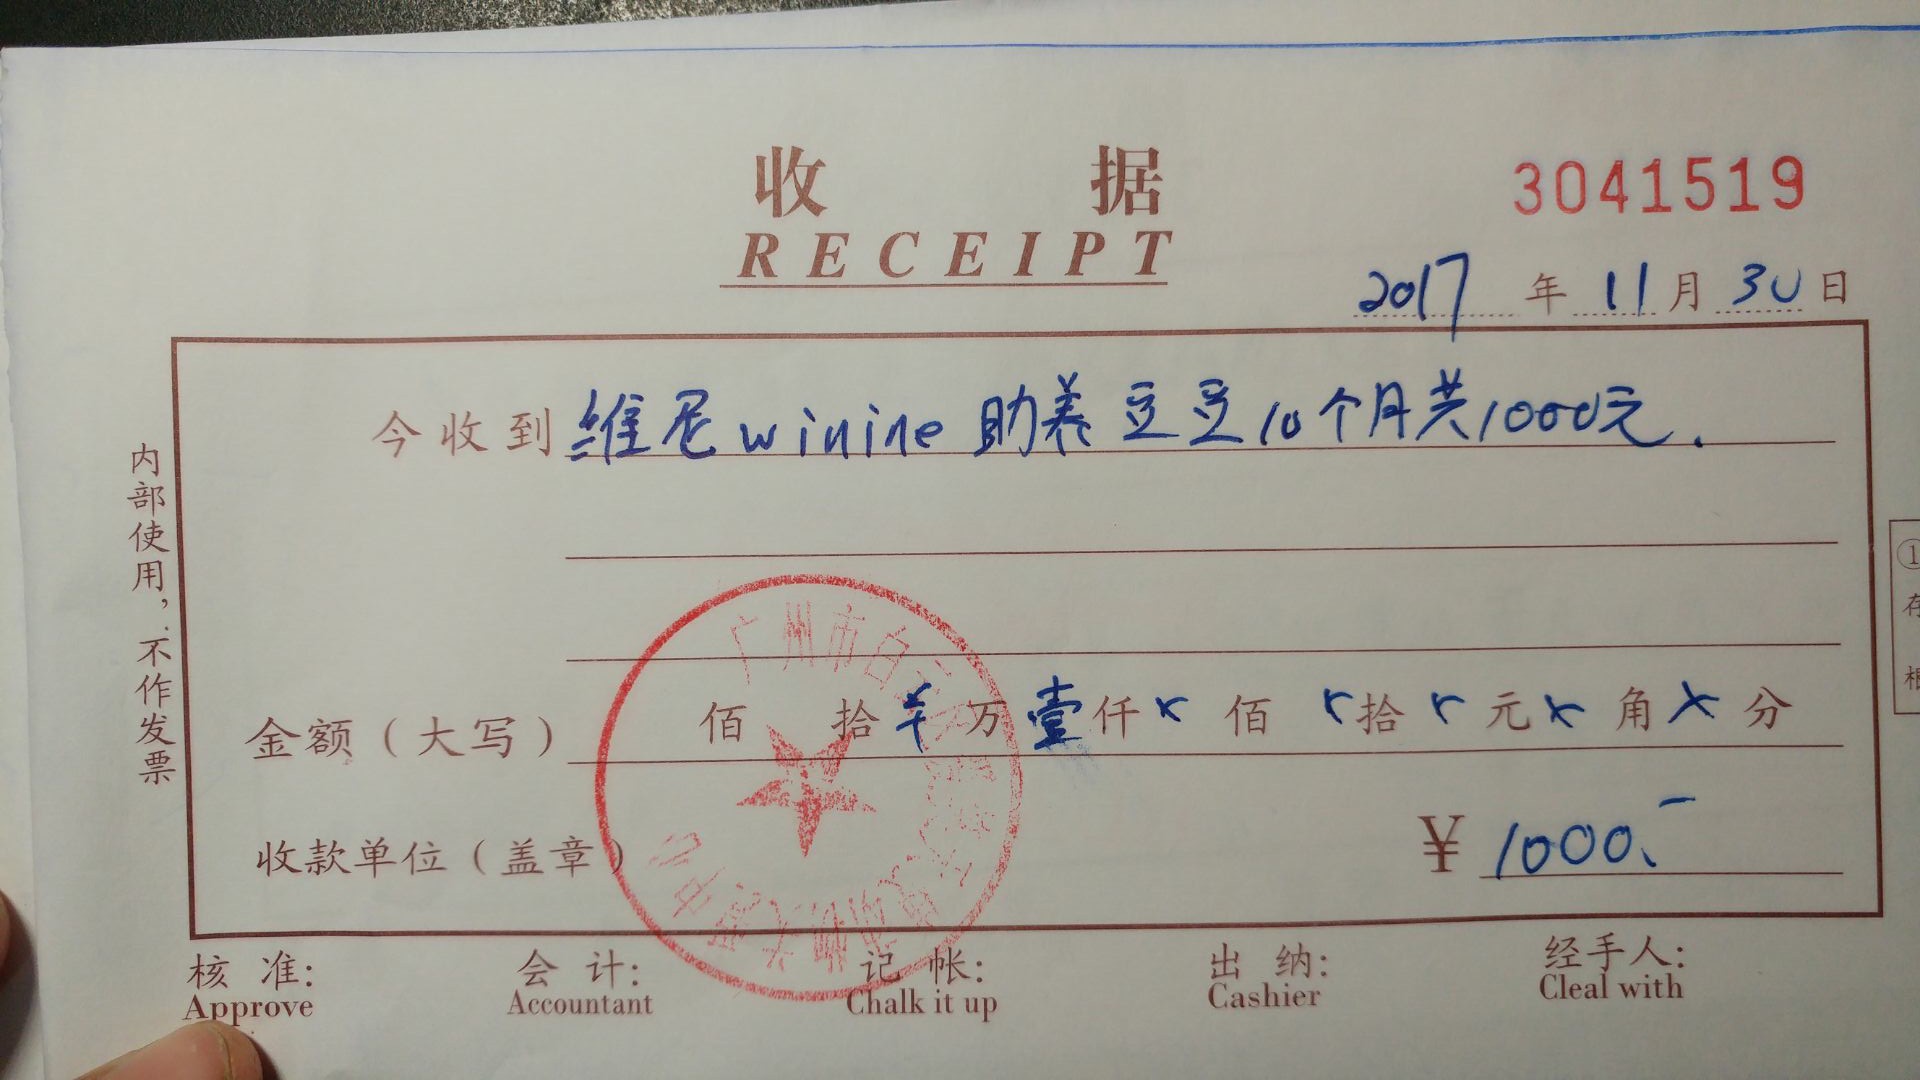 收 据
RECEIPT
3041519
2017年11月30日
今收到维尼winine助养豆豆10个月共1000元.
金额（大写） 佰 拾 ¥万壹仟×佰×拾×元×角×分
收款单位（盖章） ¥ 1000.-
广州市白云
中心
内部使用，不作发票
①存根
核 准: 会 计: 记 帐: 出 纳: 经手人:
Approve Accountant Chalk it up Cashier Cleal with